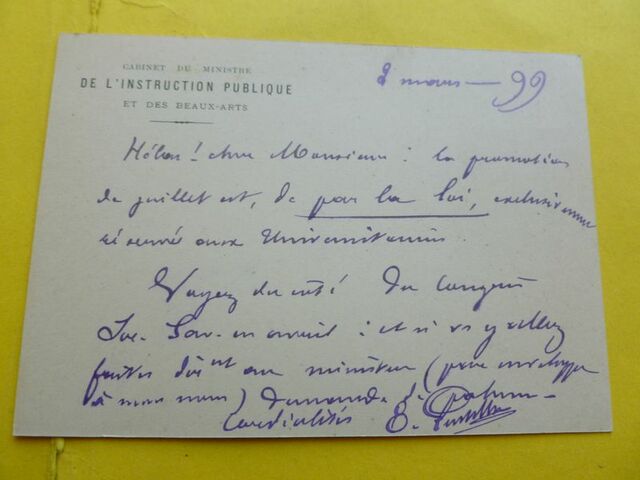 CABINET DU MINISTRE
DE L'INSTRUCTION PUBLIQUE
ET DES BEAUX-ARTS
2 mars — 99
Hélas ! cher Monsieur : la promotion
de juillet est, de par la loi, exclusivement
réservée aux Universitaires.
Voyez du côté du Congrès
Soc. Sav. en avril : et si vs y allez
faites dire au ministre (sous enveloppe
à mon nom) demande d'
Cordialités